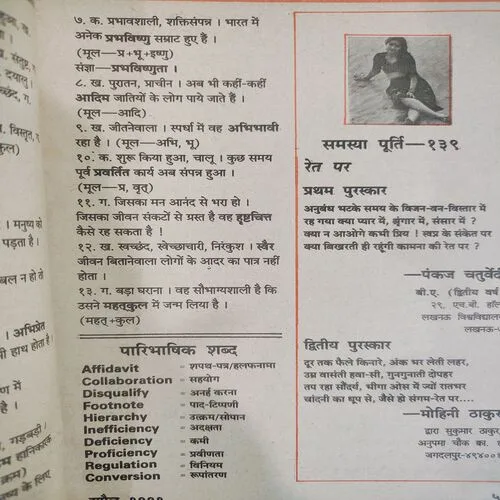 ख. संतुष्ट, र
दयालु ।
च्छंद, ग.
विस्तृत, र
कुल)
। मनुष्य को
पड़ता है ।
बल न हो तो
। अभिप्रेत
ी हाथ होता है ।
ण में
है ।
गड़बड़ी ।
हानिकारक
क्रम)
के लिए
७. क. प्रभावशाली, शक्तिसंपन्न । भारत में
अनेक प्रभविष्णु सम्राट हुए हैं ।
(मूल—प्र+भू+इष्णु)
संज्ञा—प्रभविष्णुता ।
८. ख. पुरातन, प्राचीन । अब भी कहीं-कहीं
आदिम जातियों के लोग पाये जाते हैं ।
(मूल—आदि)
९. ख. जीतनेवाला । स्पर्धा में वह अभिभावी
रहा है । (मूल—अभि, भू)
१०. क. शुरू किया हुआ, चालू । कुछ समय
पूर्व प्रवर्तित कार्य अब संपन्न हुआ ।
(मूल—प्र, वृत्)
११. ग. जिसका मन आनंद से भरा हो ।
जिसका जीवन संकटों से ग्रस्त है वह हृष्टचित्त
कैसे रह सकता है !
१२. ख. स्वच्छंद, स्वेच्छाचारी, निरंकुश । स्वैर
जीवन बितानेवाला लोगों के आदर का पात्र नहीं
होता ।
१३. ग. बड़ा घराना । वह सौभाग्यशाली है कि
उसने महत्कुल में जन्म लिया है ।
(महत्+कुल)
पारिभाषिक शब्द
Affidavit = शपथ-पत्र/हलफनामा
Collaboration = सहयोग
Disqualify = अनर्ह करना
Footnote = पाद-टिप्पणी
Hierarchy = उत्क्रम/सोपान
Inefficiency = अदक्षता
Deficiency = कमी
Proficiency = प्रवीणता
Regulation = विनियम
Conversion = रूपांतरण
समस्या पूर्ति—१३९
रेत पर
प्रथम पुरस्कार
अनुबंध भटके समय के विजन-वन-विस्तार में
रह गया क्या प्यार में, श्रृंगार में, संसार में ?
क्या न आओगे कभी प्रिय ! स्वप्न के संकेत पर
क्या बिखरती ही रहूंगी कामना की रेत पर ?
—पंकज चतुर्वेदी
बी.ए. (द्वितीय वर्ष
२९, एच.बी. हॉल
लखनऊ विश्वविद्यालय
लखनऊ-
द्वितीय पुरस्कार
दूर तक फैले किनारे, अंक भर लेती लहर,
उम्र वासंती हवा-सी, गुनगुनाती दोपहर
तप रहा सौंदर्य, भीगा ओस में ज्यों रातभर
चांदनी का धूप से, जैसे हो संगम-रेत पर....
—मोहिनी ठाकुर
द्वारा सुकुमार ठाकुर
अनुपमा चौक का.
जगदलपुर-४९४००१